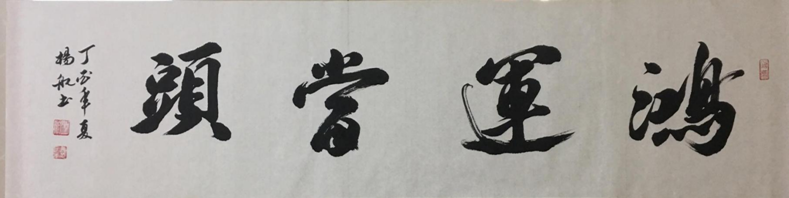 鴻運當頭
丁酉年夏
楊航书